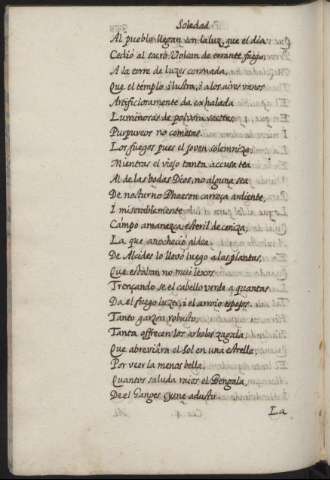 Soledad
Al pueblo llegan con la luz, que el dia
Cedió al sacro Volcan de errante fuego,
A la torre de luzes coronada,
Que el templo ilustra, i a los aires vanos
Artificiosamente da exhalada
Luminosas de polvora saetas,
Purpureos no cometas.
Los fuegos pues el joven solemniza,
Mientras el viejo tanta accusa tea
Al de las bodas Dios, no alguna sea
De nocturno Phaeton carroça ardiente,
I miserablemente
Campo amanezca esteril de ceniza,
La que anocheció aldea.
De Alcides lo llevó luego a las plantas,
Que estaban no mui lexos
Trençandose el cabello verde a quantas
Da el fuego luzes, i el arroio espejos.
Tanto garzon robusto,
Tanta offrecen los arboles zagala,
Que abreviára el Sol en una estrella
Por veer la menos bella,
Quantos saluda raios el Bengala,
De el Ganges cisne adusto.
La